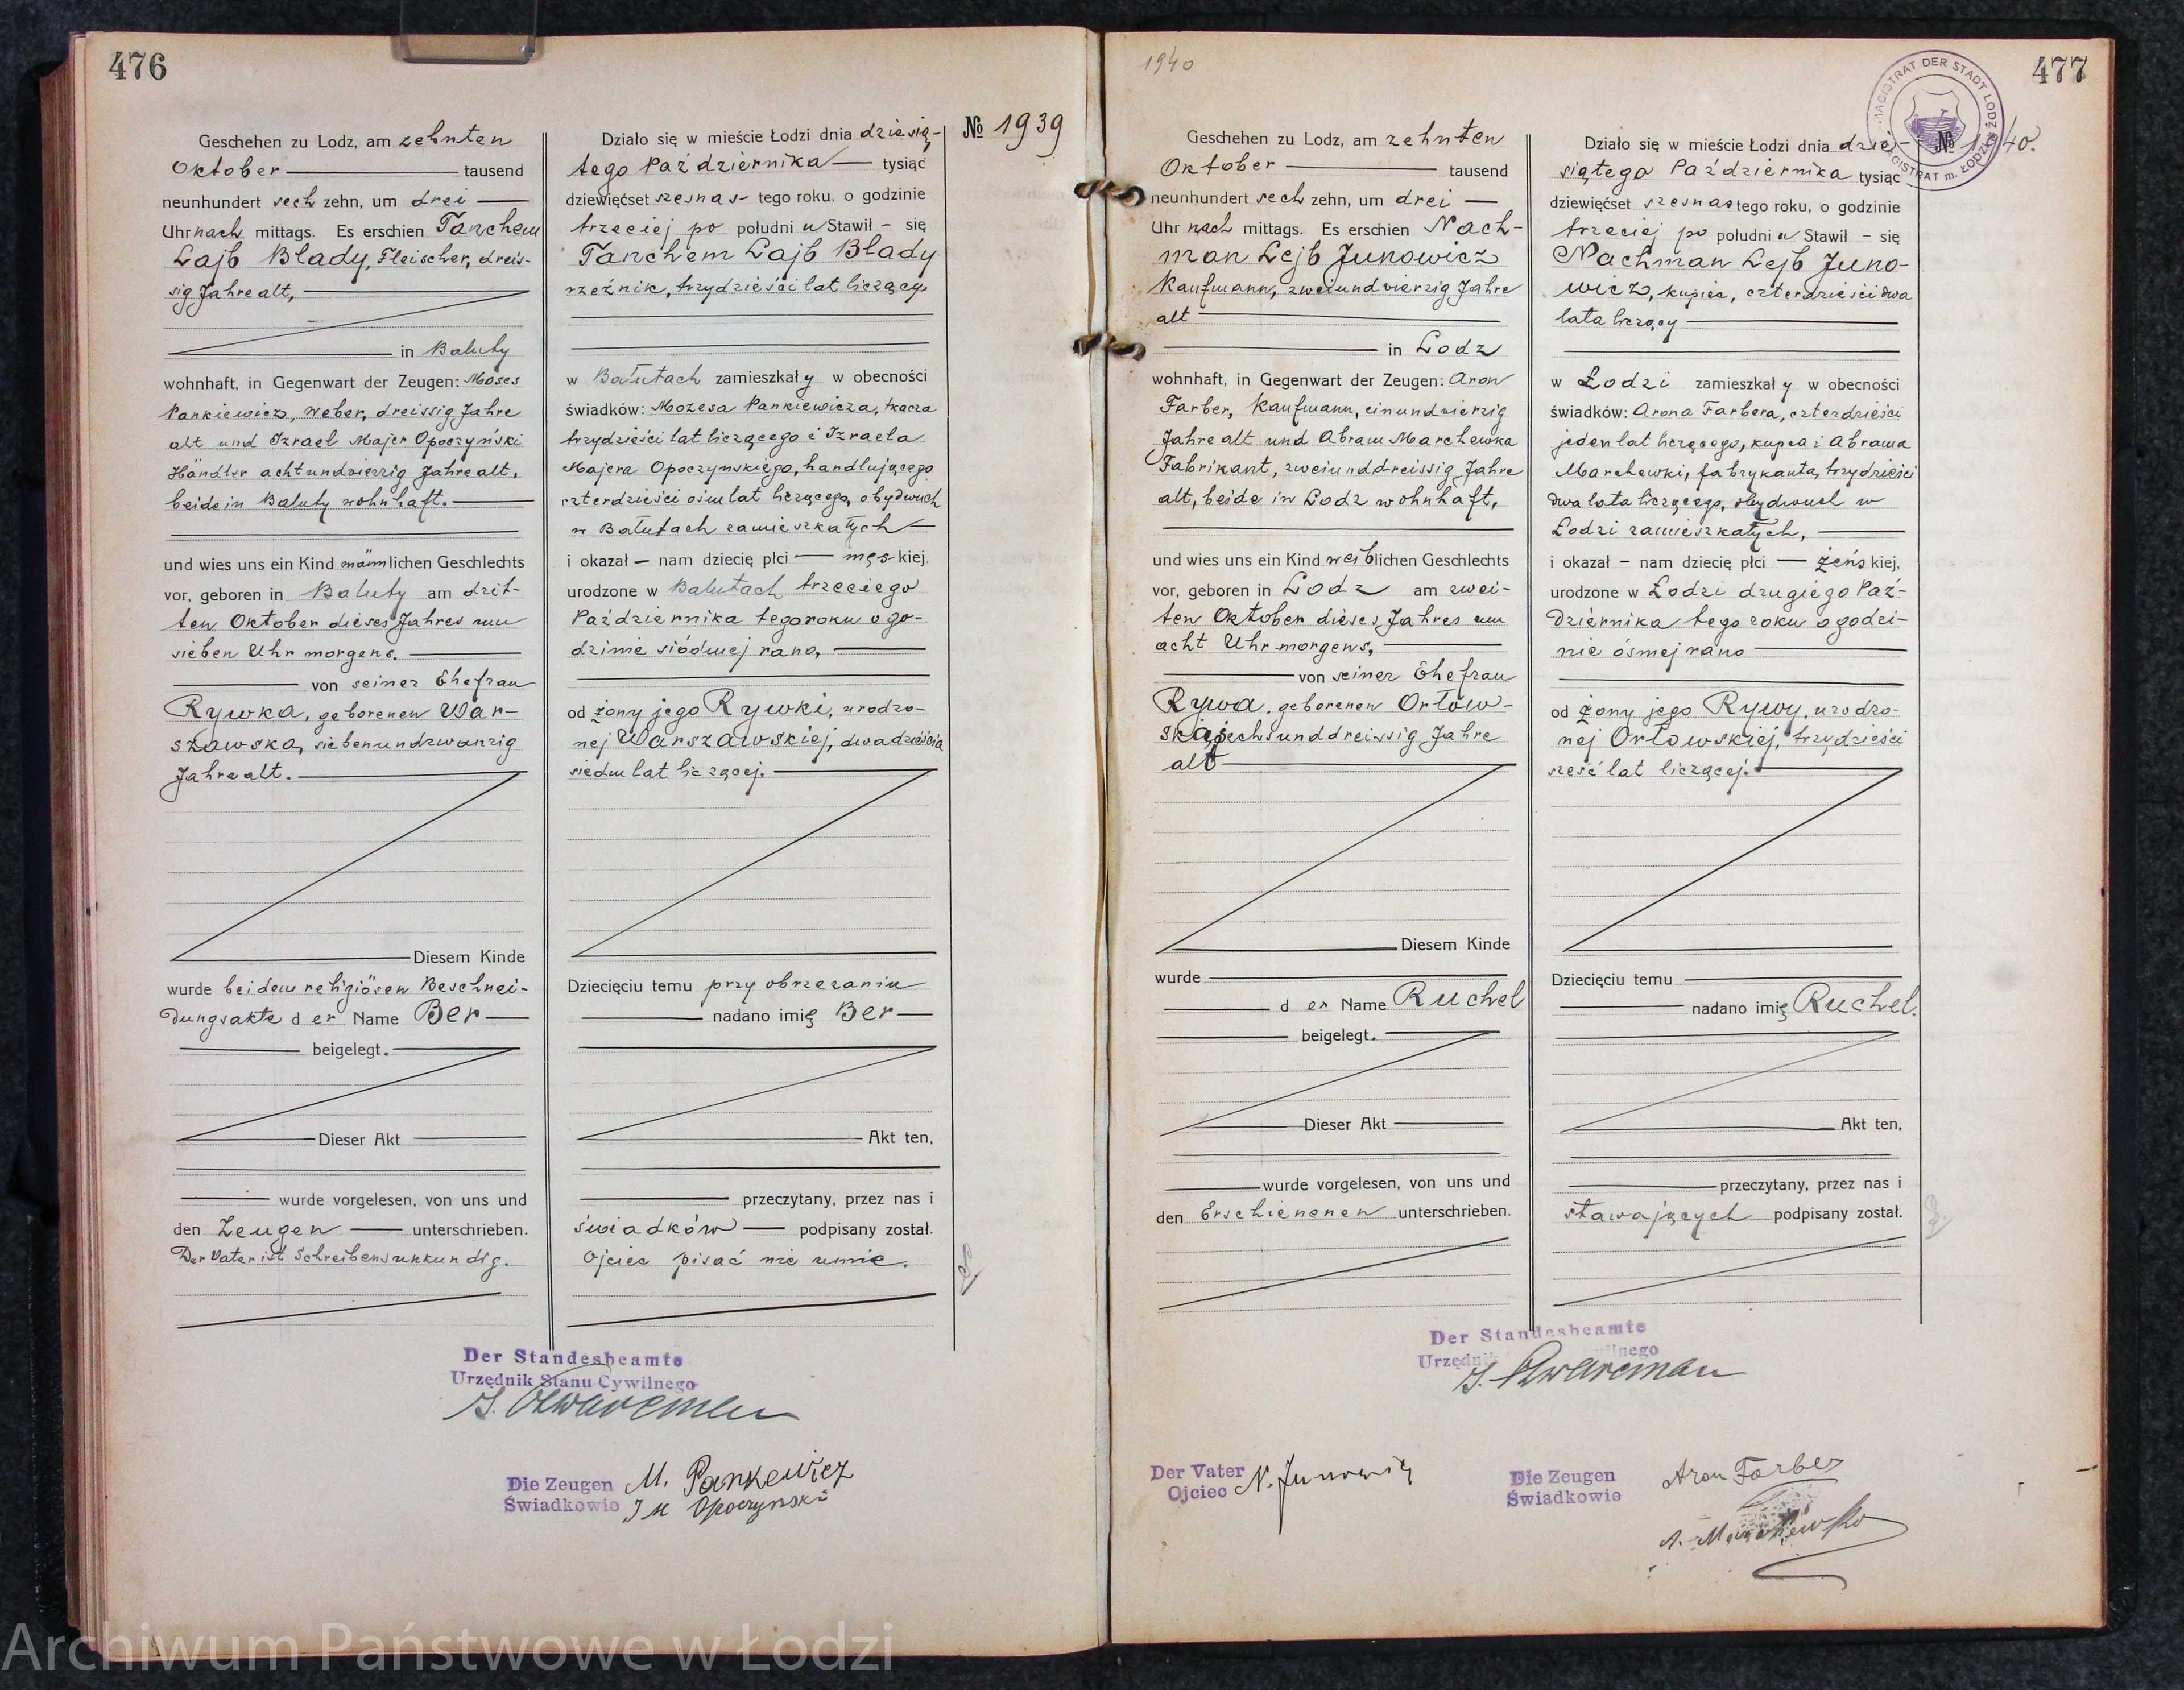 476
Geschehen zu Lodz, am zehnten
Oktober tausend
neunhundert sech zehn, um drei
Uhr nach mittags. Es erschien Tanchem
Lajb Blady, Fleischer, dreis-
sig Jahre alt,
in Baluty
wohnhaft, in Gegenwart der Zeugen: Moses
Pankiewicz, Weber, dreissig Jahre
alt und Izrael Majer Opoczyński
Händler achtundvierzig Jahre alt,
beide in Baluty wohnhaft.
und wies uns ein Kind männlichen Geschlechts
vor, geboren in Baluty am drit-
ten Oktober dieses Jahres um
sieben Uhr morgens.
von seiner Ehefrau
Rywka, geborenen War-
szawska, siebenundzwanzig
Jahre alt.
Diesem Kinde
wurde bei dem religiösen Beschnei-
dungsakte d er Name Ber
beigelegt.
Dieser Akt
wurde vorgelesen, von uns und
den Zeugen unterschrieben.
Der Vater ist Schreibensunkundig.
Działo się w mieście Łodzi dnia dziesią-
tego Października tysiąc
dziewięćset szesnas- tego roku. o godzinie
trzeciej po południu Stawił - się
Tanchem Lajb Blady
rzeźnik, trzydzieści lat liczący
w Bałutach zamieszkały w obecności
świadków: Mozesa Pankiewicza, tkacza
trzydzieści lat liczącego i Izraela
Majera Opoczynskiego, handlującego
czterdzieści ośm lat liczącego, obydwuch
w Bałutach zamieszkałych
i okazał — nam dziecię płci — męskiej.
urodzone w Bałutach trzeciego
Października tego roku o go-
dzinie siódmej rano,
od żony jego Rywki, urodzo-
nej Warszawskiej, dwadzieścia
siedm lat liczącej.
Dziecięciu temu przy obrzezaniu
nadano imię Ber
Akt ten,
przeczytany, przez nas i
świadków podpisany został.
Ojciec pisać nie umie.
№ 1939
Der Standesbeamte
Urzędnik Stanu Cywilnego
Die Zeugen M. Pankewicz
Świadkowie I M Opoczynski
1940
477
MAGISTRAT DER STADT LODZ
MAGISTRAT m. ŁODZI
Geschehen zu Lodz, am zehnten
Oktober tausend
neunhundert sech zehn, um drei
Uhr nach mittags. Es erschien Nach-
man Lejb Junowicz
Kaufmann, zweiundvierzig Jahre
alt
in Lodz
wohnhaft, in Gegenwart der Zeugen: Aron
Farber, Kaufmann, einundvierzig
Jahre alt und Abram Marchewka
Fabrikant, zweiunddreissig Jahre
alt, beide in Lodz wohnhaft,
und wies uns ein Kind weiblichen Geschlechts
vor, geboren in Lodz am zwei-
ten Oktober dieses Jahres um
acht Uhr morgens,
von seiner Ehefrau
Rywa, geborenen Orłow-
ska, sechsunddreissig Jahre
alt
Diesem Kinde
wurde
d er Name Ruchel
beigelegt.
Dieser Akt
wurde vorgelesen, von uns und
den Erschienenen unterschrieben.
Działo się w mieście Łodzi dnia dzie-
siątego Października tysiąc
dziewięćset szesnastego roku, o godzinie
trzeciej po południu Stawił - się
Nachman Lejb Juno-
wicz, kupiec, czterdzieści dwa
lata liczący
w Łodzi zamieszkały w obecności
świadków: Arona Farbera, czterdzieści
jeden lat liczącego, kupca i Abrama
Marchewki, fabrykanta, trzydzieści
dwa lata liczącego, obydwuch w
Łodzi zamieszkałych,
i okazał - nam dziecię płci — żeńskiej,
urodzone w Łodzi drugiego Paź-
dziernika tego roku o godzi-
nie ósmej rano
od żony jego Rywy, urodzo-
nej Orłowskiej, trzydzieści
sześć lat liczącej.
Dziecięciu temu
nadano imię Ruchel.
Akt ten,
przeczytany, przez nas i
stawających podpisany został.
№ 1940.
Der Standesbeamte
Der Vater N. Junowicz
Ojciec
Die Zeugen Aron Farber
Świadkowie A. Marchewka
Archiwum Państwowe w Łodzi